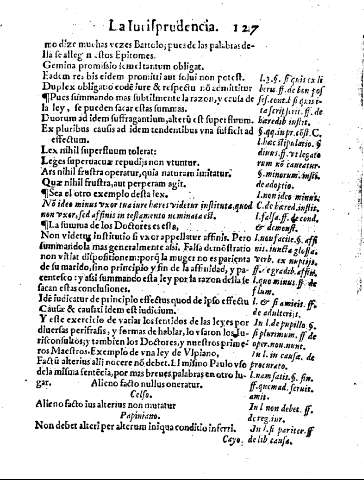 La Iurisprudencia. 127
mo dize muchas vezes Bartolo; pues de las palabras de-
lla se allegan estos Epitomes.
Gemina promissio semel tantum obligat.
Eadem res bis eidem promitti aut solui non potest.
Duplex obligatio codē iure & respectu nō admittitur
¶Pues summando mas subtilmente la razon, y causa de
la ley, se pueden sacar estas summas.
Duorum ad idem suffragantium, alterū est superfluum.
Ex pluribus causis ad idem tendentibus vna sufficit ad
effectum.
Lex nihil superfluum tolerat:
Leges superuacuæ repudijs non vtuntur.
Ars nihil frustra operatur, quia naturam imitatur.
Quæ nihil frustra, aut perperam agit.
¶Sea el otro exemplo desta lex.
Nō ideo minus vxor tua iure hæres videtur instituta, quod
non vxor, sed affinis in testamento nominata est.
¶La summa de los Doctores es esta,
Non videtur institutio si vxor appelletur affinis. Pero
summandola mas generalmente assi. Falsa demōstratio
non vitiat dispositionem: porq̄ la muger no es parienta
de su marido, sino principio y fin de la affinidad, y pa-
rentesco: y assi summando esta ley por la razon della se
sacan estas conclusiones.
Idē iudicatur de principio effectus quod de ipso effectu
Causæ & causati idem est iudicium.
Y este exercicio de variar los sentidos de las leyes por
diuersas perifrasis, y formas de hablar, lo vsaron los Iu-
risconsultos; y tambien los Doctores, y nuestros prime-
ros Maestros. Exemplo de vna ley de Vlpiano,
Factū alterius alij nocere nō debet. El mismo Paulo vso
dela misma sentēcia, por mas breues palabras en otro lu-
gar. Alieno facto nullus oneratur.
Celso.
Alieno facto ius alterius non mutatur
Papiniano.
Non debet alteri per alterum iniqua conditio inferri.
Cayo.
l.3.§. si quis ex li
beris. ff. de bon pos
ses. cont. l. si quis te
ta scriptis. ff. de
hæredib instit.
§. qq. in pr. const. C.
l. hac stipulatio. §
diuus. ff. vt legato
rum nō caueatur.
§. minorum. instit.
de adoptio.
l. non ideo minus:
C. de hæred. instit.
l. falsa. ff. de cond.
& demonst.
l. nam facile. §. affi
nis. iuncta glossa.
verb. ex nuptijs.
ff. gradib. affin.
l. quo minus. ff. de
flum.
l. & si amicit. ff.
de adulterijs.
In l. de pupillo §.
si plurimum. ff. de
oper. non nunt.
In l. in causæ. de
procurato.
l. nam satis. §. fin.
ff. quemad. seruit.
amit.
In l non debet. ff.
de reg. iur.
In l. si pariter ff
de lib causa.